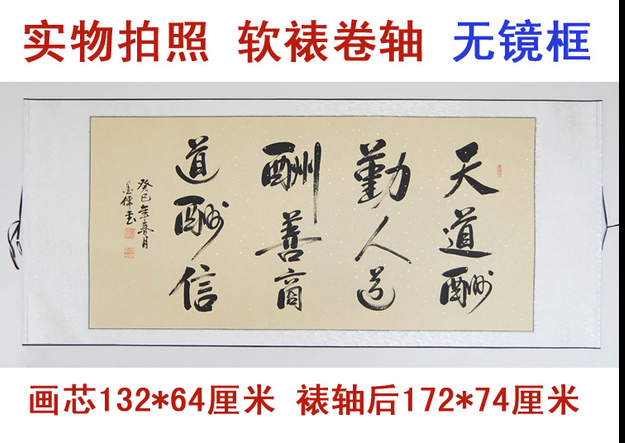 实物拍照 软裱卷轴 无镜框
天道酬
勤人道
酬善商
道酬信
癸巳年春月
画芯132*64厘米 裱轴后172*74厘米